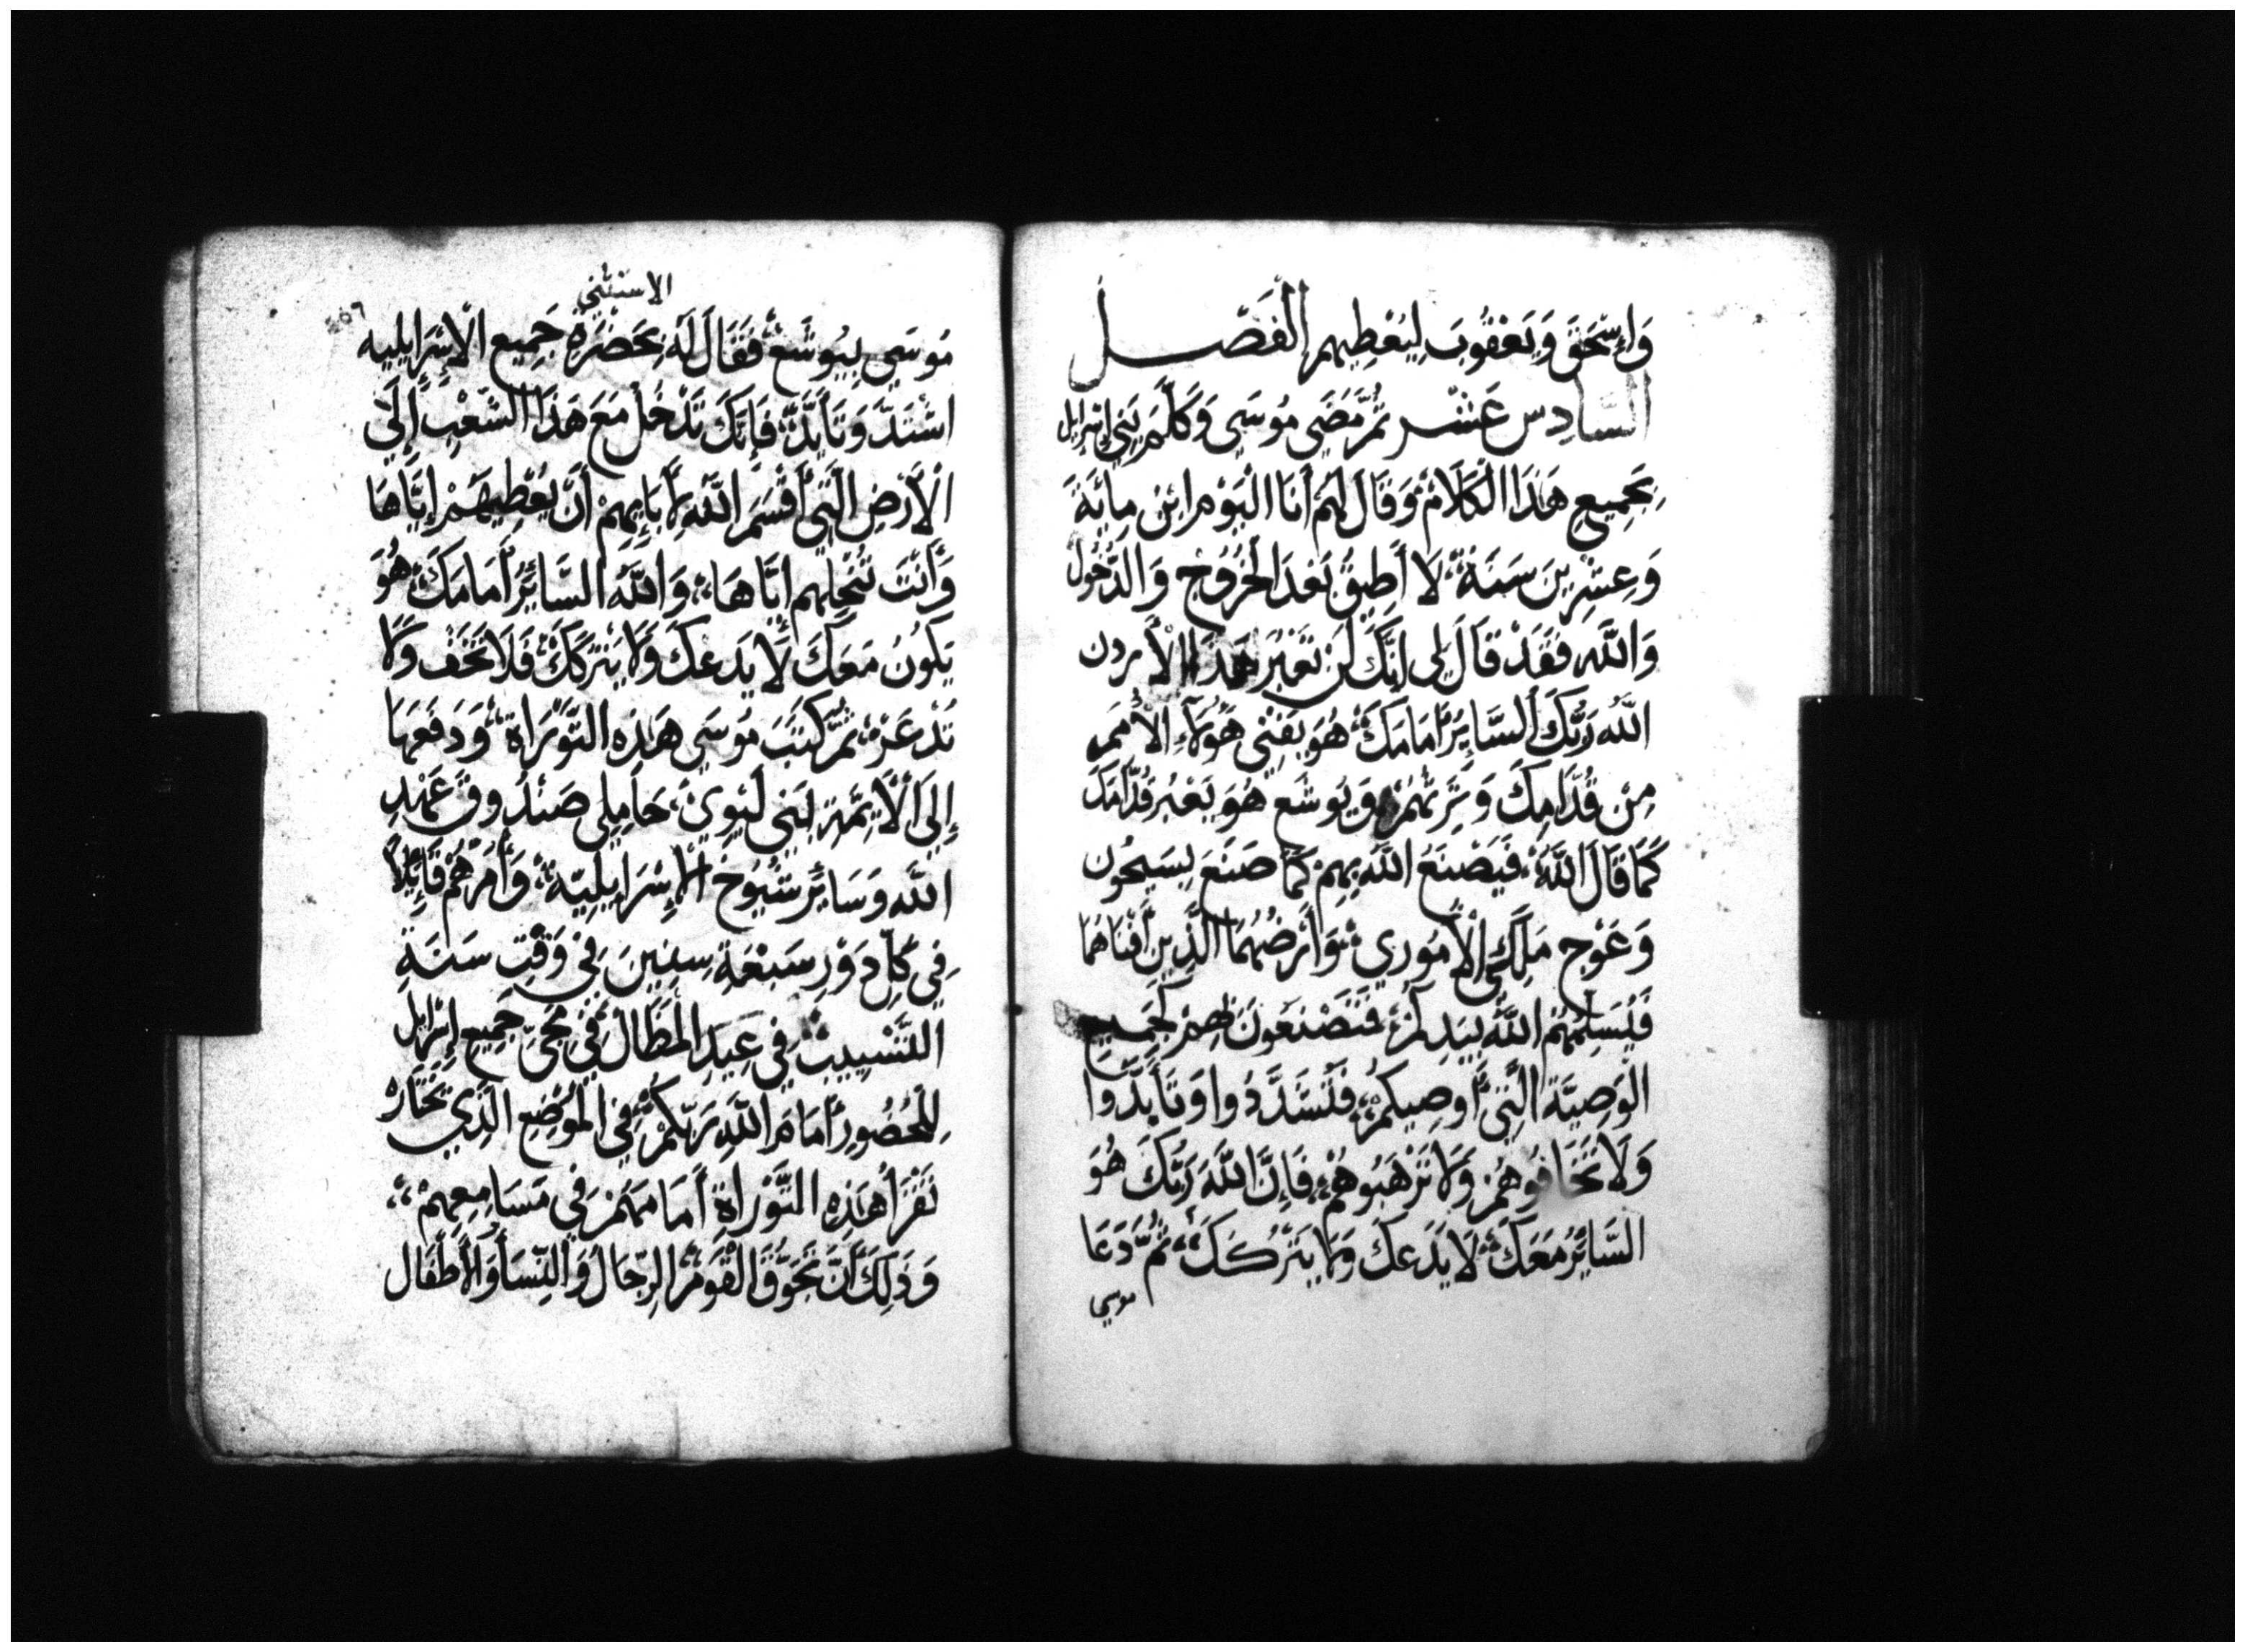 وَإِسْحَقَ وَيَعْقُوبَ لِيُعْطِيهم الْفَصْل
السَّادِس عَشْر ثُمَّ مَضَى مُوسَى وَكَلَّمَ بَنِي إِسْرَايل
بِجَمِيعِ هَذَا الْكَلَامْ، وَقَالَ لَهُم أَنَا الْيَوْم ابْن مِائَة
وَعِشْرِينَ سَنَة، لَا أَطِيقُ بَعْدَ الْخُرُوج وَالدُّخُول
وَاللَّه فَقَدْ قَالَ لِي انَّكَ لَن تَعْبُرَ هَذَا الْأَردن
اللَّه رَبُّكَ السَّايِرُ أَمَامَكَ، هُوَ يَفْنِي هَؤُلَاءِ الْأُمَم
مِنْ قُدَّامِكَ وَتَرِثُهُمْ، وَيُوشَع هُوَ يَعْبُر قُدَّامَكَ
كَمَا قَالَ اللَّهُ، فَيَصْنَعُ اللَّه بِهِمْ كَمَا صَنَعَ بِسَيْحُون
وَعَوْج مَلِكَي الْأَمُورِي، وَأَرْضُهُمَا الَّذِينَ أَفْنَاهَمَا
فَيُسَلِّمُهُمْ اللَّهُ بِيَدِكُمْ، فَتَصْنَعُونَ بِهِمْ كَجَمِيع
الْوَصِيَّة الَّتِي أُوصِيكُمْ، فَتَشَدَّدُوا وَتَأَيَّدُوا
وَلَا تَخَافُوهُمْ وَلَا تَرْهَبُوهُمْ، فَإِنَّ اللَّهَ رَبُّكَ هُوَ
السَّايِرُ مَعَكَ، لَا يَدَعكَ وَلَا يَتْرُكَكَ، ثُمَّ دَعَا
موسى
الاستثنى
مُوسَى بِيُوشَعْ، فَقَالَ لَهُ بِحَضْرَةِ جَمِيع الْإِسْرَايِلِيه
اشْتَدَّ وَتَأَيَّدْ، فَإِنَّكَ تَدْخُل مَعَ هَذَا الشَّعْبِ إِلَى
الْأَرْضِ الَّتِي أَقْسَمَ اللَّه لِأَبَايِهِمْ أَنْ يُعْطِيهَمْ إِيَّاهَا
وَأَنْتَ تُنْحِلهم إِيَّاهَا، وَاللَّهُ السَّايِرُ أَمَامَكَ، هُوَ
يَكُونُ مَعَكَ لَا يَدَعكَ وَلَا يَتْرَكَكَ، فَلَا تَخَفْ وَلَا
تُذْعَرْ، ثُمَّ كَتَبَ مُوسَى هَذِه التَّوْرَاة، وَدَفَعَهَا
إِلَى الْأَيِمَّةِ بَنِي لَيوِي، حَامِلِي صَنْدُوق عَهْدِ
اللَّه وَسَايِر شُيُوخ الْإِسْرَايِلِيّه، وَأَمَرَهُمْ قَايِلًا
فِي كُلِّ دَوْرِ سَبْعَةِ سِنِينَ فِي وَقْتِ سَنَةِ
التَّسْيِيبْ، فِي عِيدِ الْمَظَالْ، فِي مَجِي جَمِيع إِسْرَايل
لِلْحُضُورِ أَمَامَ اللَّهِ رَبّكُمْ، فِي الْمَوْضِع الَّذِي تَخْتَارُه
تَقْرَأُ هَذِهِ التَّوْرَاةَ أَمَامَهُمْ فِي مَسَامِعِهِمْ،
وَذَلِكَ أَنْ تُجَوَّقَ الْقَوْمَ، الرِّجَالْ وَالنِّسَا وَالْأَطْفَال